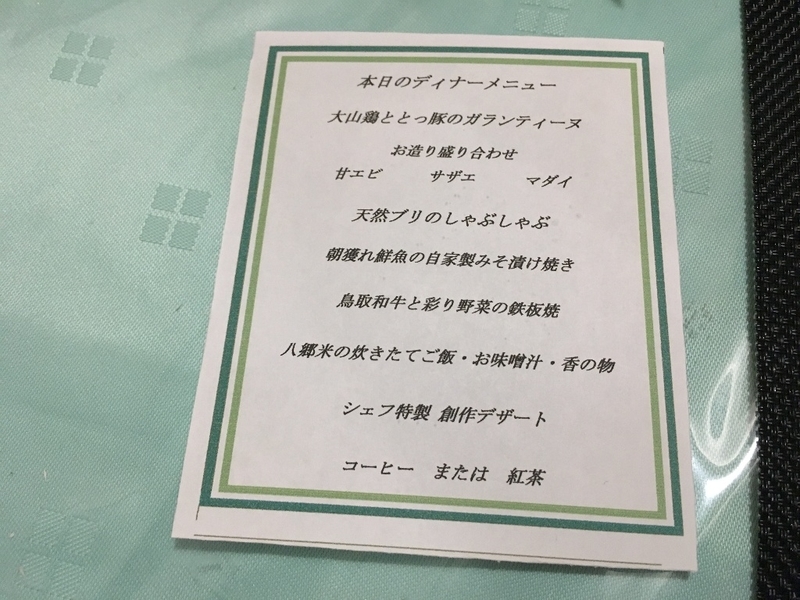 本日のディナーメニュー
大山鶏ととっ豚のガランティーヌ
お造り盛り合わせ
甘エビ サザエ マダイ
天然ブリのしゃぶしゃぶ
朝獲れ鮮魚の自家製みそ漬け焼き
鳥取和牛と彩り野菜の鉄板焼
八郷米の炊きたてご飯・お味噌汁・香の物
シェフ特製 創作デザート
コーヒー または 紅茶